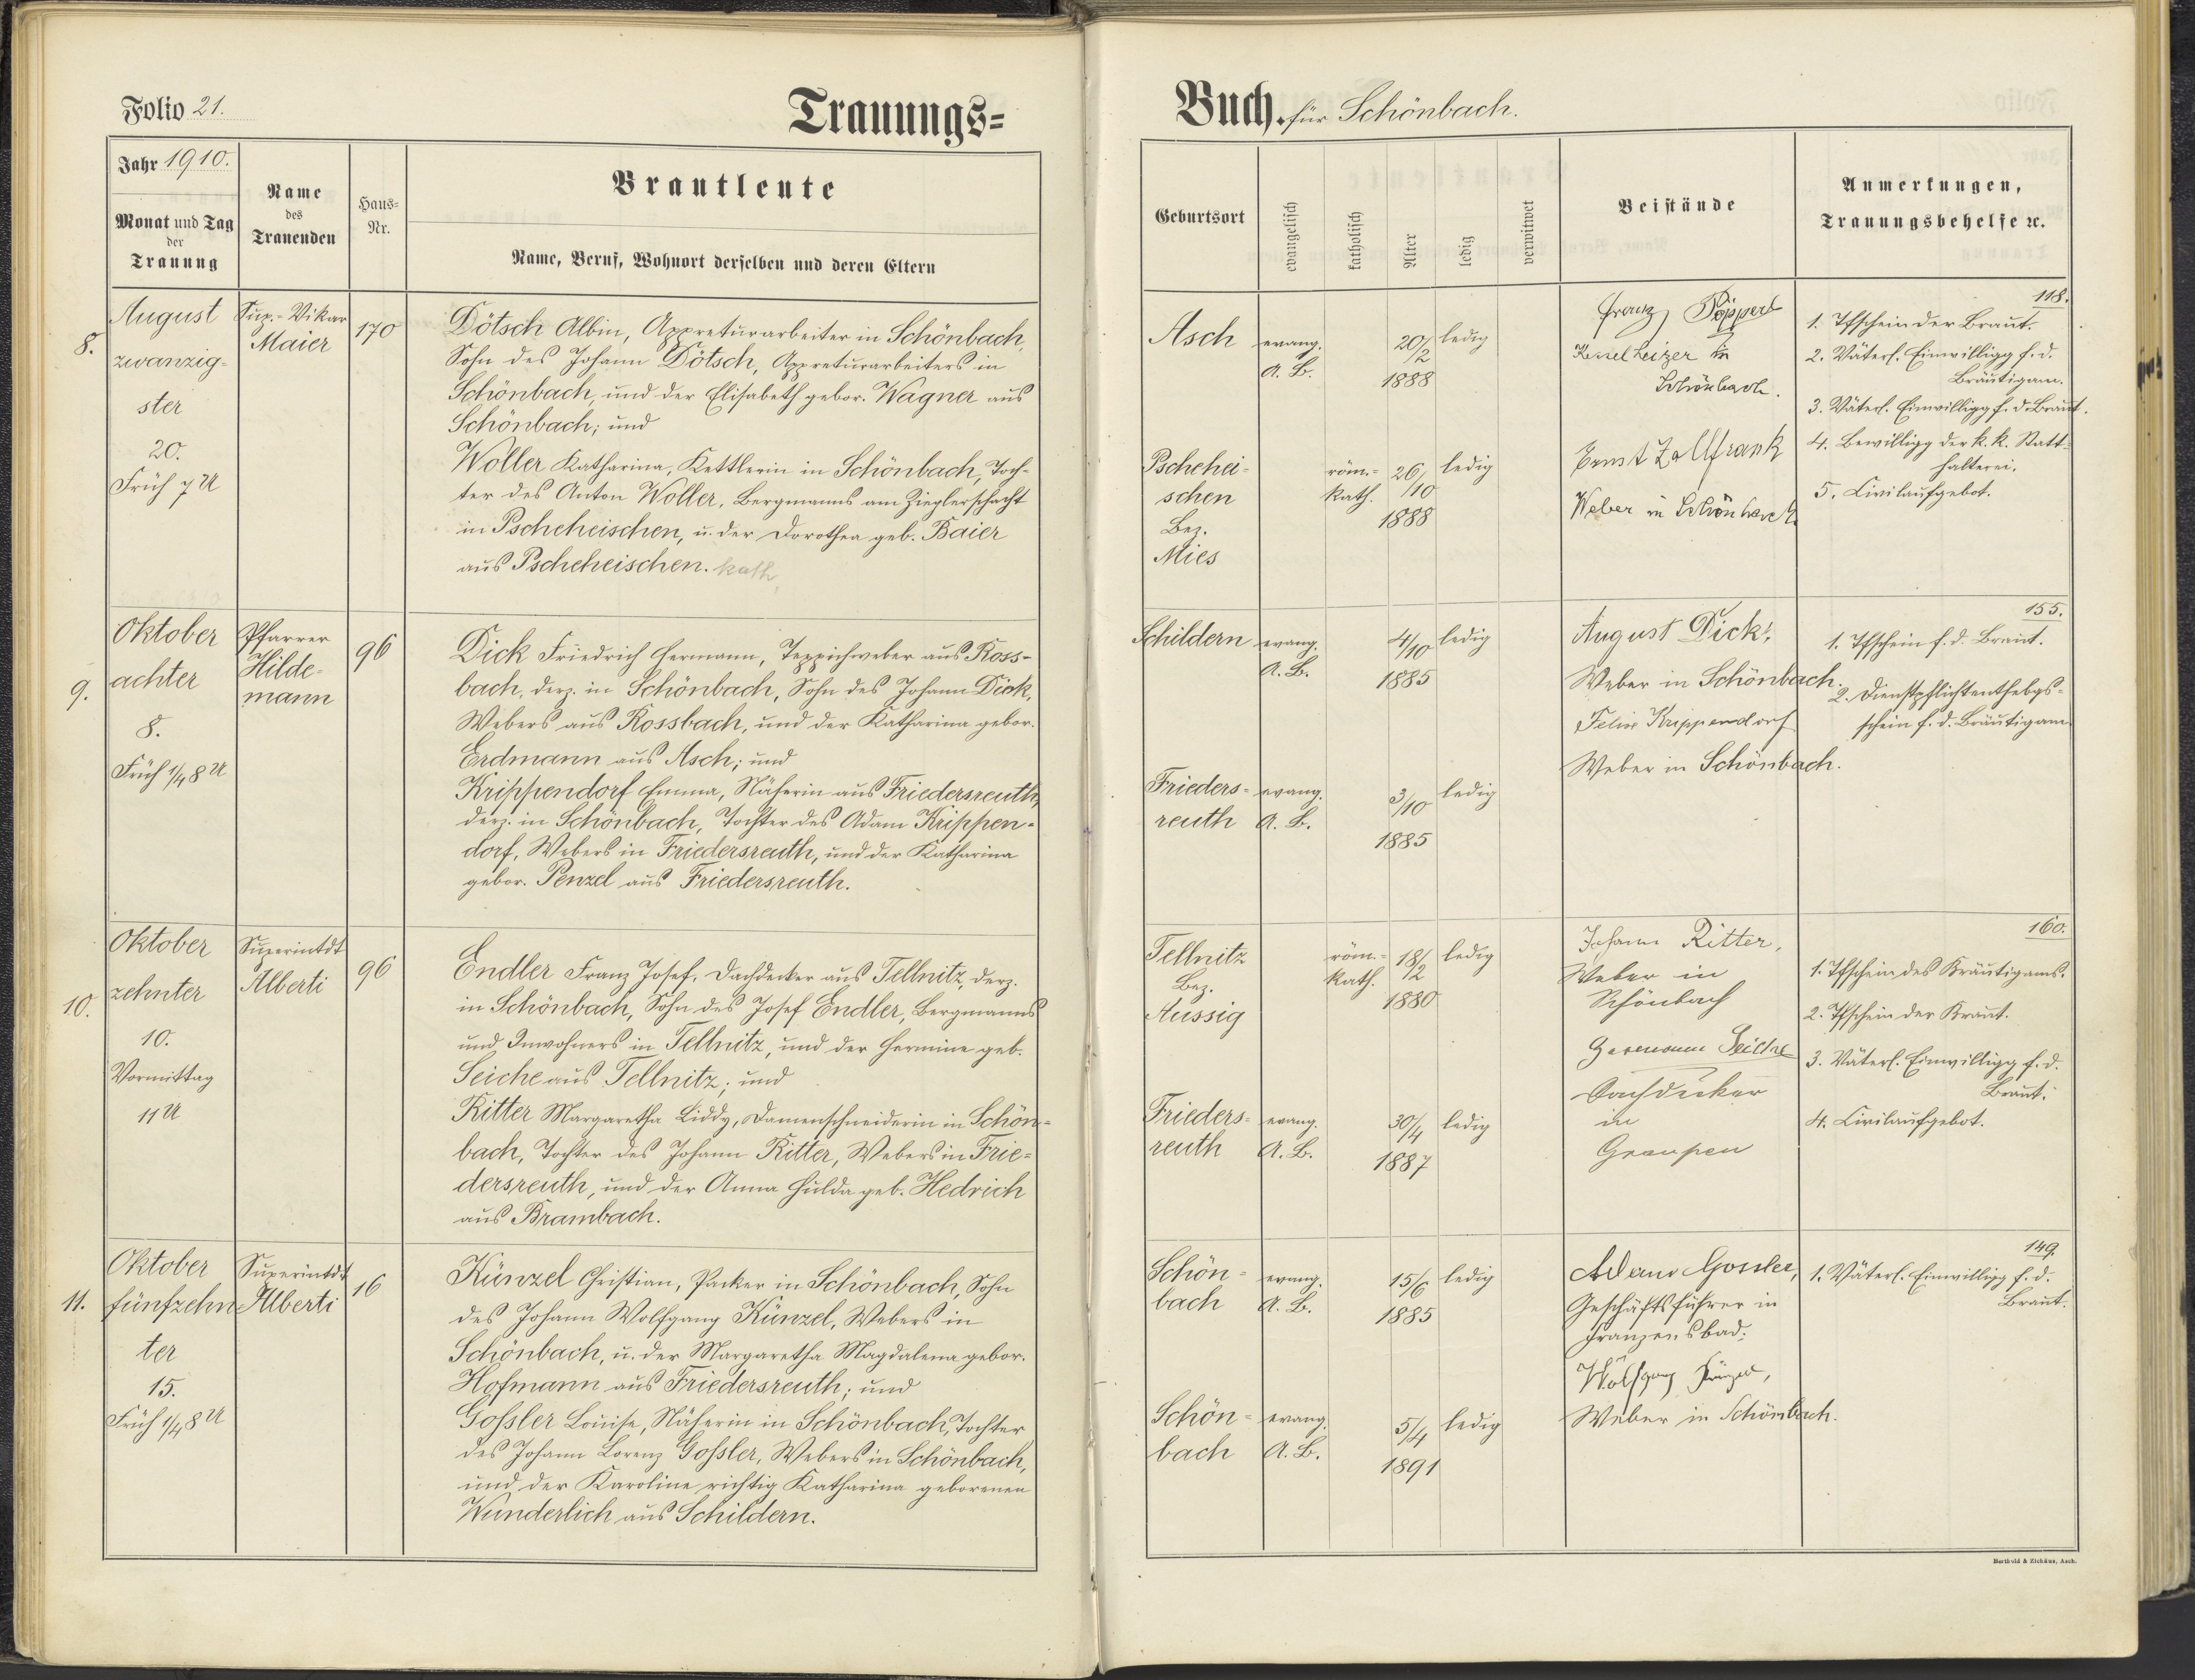 Folio 21.
Trauungs=
Jahr 1910.
Monat und Tag
der
Trauung
Name
des
Trauenden
Haus=
Nr.
Brautleute
Name, Beruf, Wohnort derselben und deren Eltern
8.
August
zwanzig-
ster
20.
Früh 7 U
Sup.-Vikar
Maier
170
Dötsch Albin, Appreturarbeiter in Schönbach,
Sohn des Johann Dötsch, Appreturarbeiters in
Schönbach, und der Elisabeth gebor. Wagner aus
Schönbach; und
Woller Katharina, Kettlerin in Schönbach, Toch-
ter des Anton Woller, Bergmanns am Zieglerschacht
in Pscheheischen, u. der Dorothea geb. Baier
aus Pscheheischen. kath.
9.
Oktober
achter
8.
Früh 1/4 8 U
Pfarrer
Hilde-
mann
96
Dick Friedrich Hermann, Teppichweber aus Ross-
bach, derz. in Schönbach, Sohn des Johann Dick,
Webers aus Rossbach, und der Katharina gebor.
Erdmann aus Asch; und
Krippendorf Emma, Näherin aus Friedersreuth,
derz. in Schönbach, Tochter des Adam Krippen-
dorf, Webers in Friedersreuth, und der Katharina
gebor. Penzel aus Friedersreuth.
10.
Oktober
zehnter
10.
Vormittag
11 U
Superintdt
Alberti
96
Endler Franz Josef, Dachdecker aus Tellnitz, derz.
in Schönbach, Sohn des Josef Endler, Bergmanns
und Inwohners in Tellnitz, und der Hermine geb.
Seiche aus Tellnitz; und
Ritter Margaretha Liddy, Damenschneiderin in Schön-
bach, Tochter des Johann Ritter, Webers in Frie-
dersreuth, und der Anna Hulda geb. Hedrich
aus Brambach.
11.
Oktober
fünfzehn-
ter
15.
Früh 1/4 8 U
Superintdt
Alberti
16
Künzel Christian, Packer in Schönbach, Sohn
des Johann Wolfgang Künzel, Webers in
Schönbach, u. der Margaretha Magdalena gebor.
Hofmann aus Friedersreuth; und
Gossler Louise, Näherin in Schönbach, Tochter
des Johann Lorenz Gossler, Webers in Schönbach,
und der Karoline richtig Katharina geborenen
Wunderlich aus Schildern.
Buch. für Schönbach.
Geburtsort
evangelisch
katholisch
Alter
ledig
verwitwet
Beistände
Anmerkungen,
Trauungsbehelfe ꝛc.
Asch
evang.
A. B.
20/2
1888
ledig
Pschehei-
schen
Bez.
Mies
röm.-
kath.
26/10
1888
ledig
Franz Pöpperl
Kesselheizer in
Schönbach.
Ernst Zollfrank
Weber in Schönbach
118.
1. Tfschein der Braut.
2. Väterl. Einwilligg f. d.
Bräutigam.
3. Väterl. Einwilligg f. d. Braut.
4. Bewilligg der k. k. Statt-
halterei.
5. Civilaufgebot.
Schildern
evang.
A. B.
4/10
1885
ledig
Frieders-
reuth
evang.
A. B.
3/10
1885
ledig
August Dick,
Weber in Schönbach.
Krippendorf
Weber in Schönbach.
155.
1. Tfschein f. d. Braut.
2. Dienstpflichtenthebgs-
schein f. d. Bräutigam
Tellnitz
Bez.
Aussig
röm.-
kath.
18/2
1880
ledig
Frieders-
reuth
evang.
A. B.
30/4
1887
ledig
Johann Ritter,
Weber in
Schönbach
Hermann Seiche
Dachdecker
in
Graupen
160.
1. Tfschein des Bräutigams.
2. Tfschein der Braut.
3. Väterl. Einwilligg f. d.
Braut.
4. Civilaufgebot.
Schön-
bach
evang.
A. B.
15/6
1885
ledig
Schön-
bach
evang.
A. B.
5/4
1891
ledig
Adam Gossler,
Geschäftsführer in
Franzensbad.
Wolfgang Künzel,
Weber in Schönbach.
149.
1. Väterl. Einwilligg f. d.
Braut.
Berthold & Zichäus, Asch.